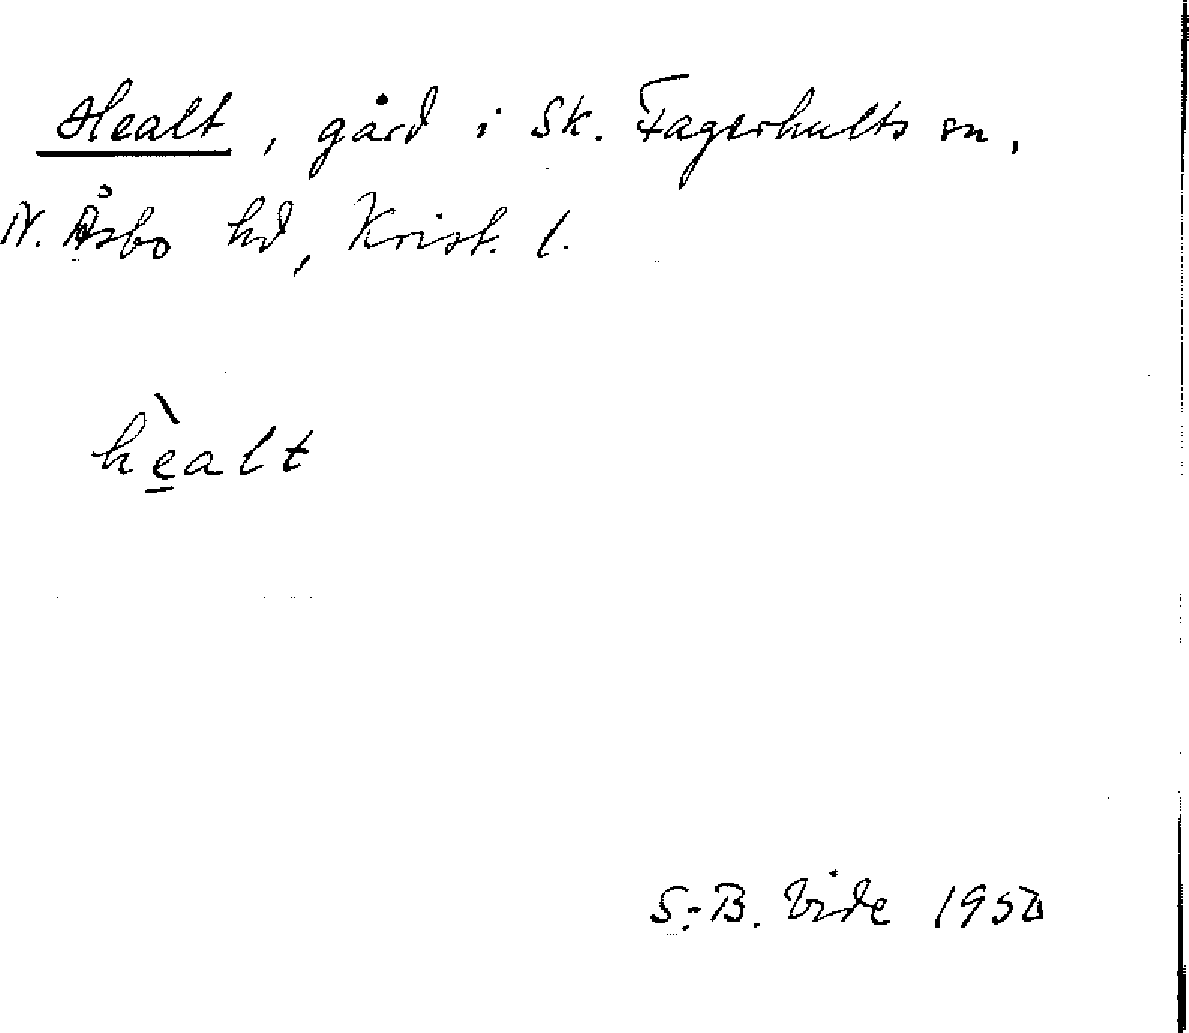 Healt, gård i Sk. Fagerhults sn,
N. Åsbo hd, Krist. l.
hèalt
S.-B. Vide 1950